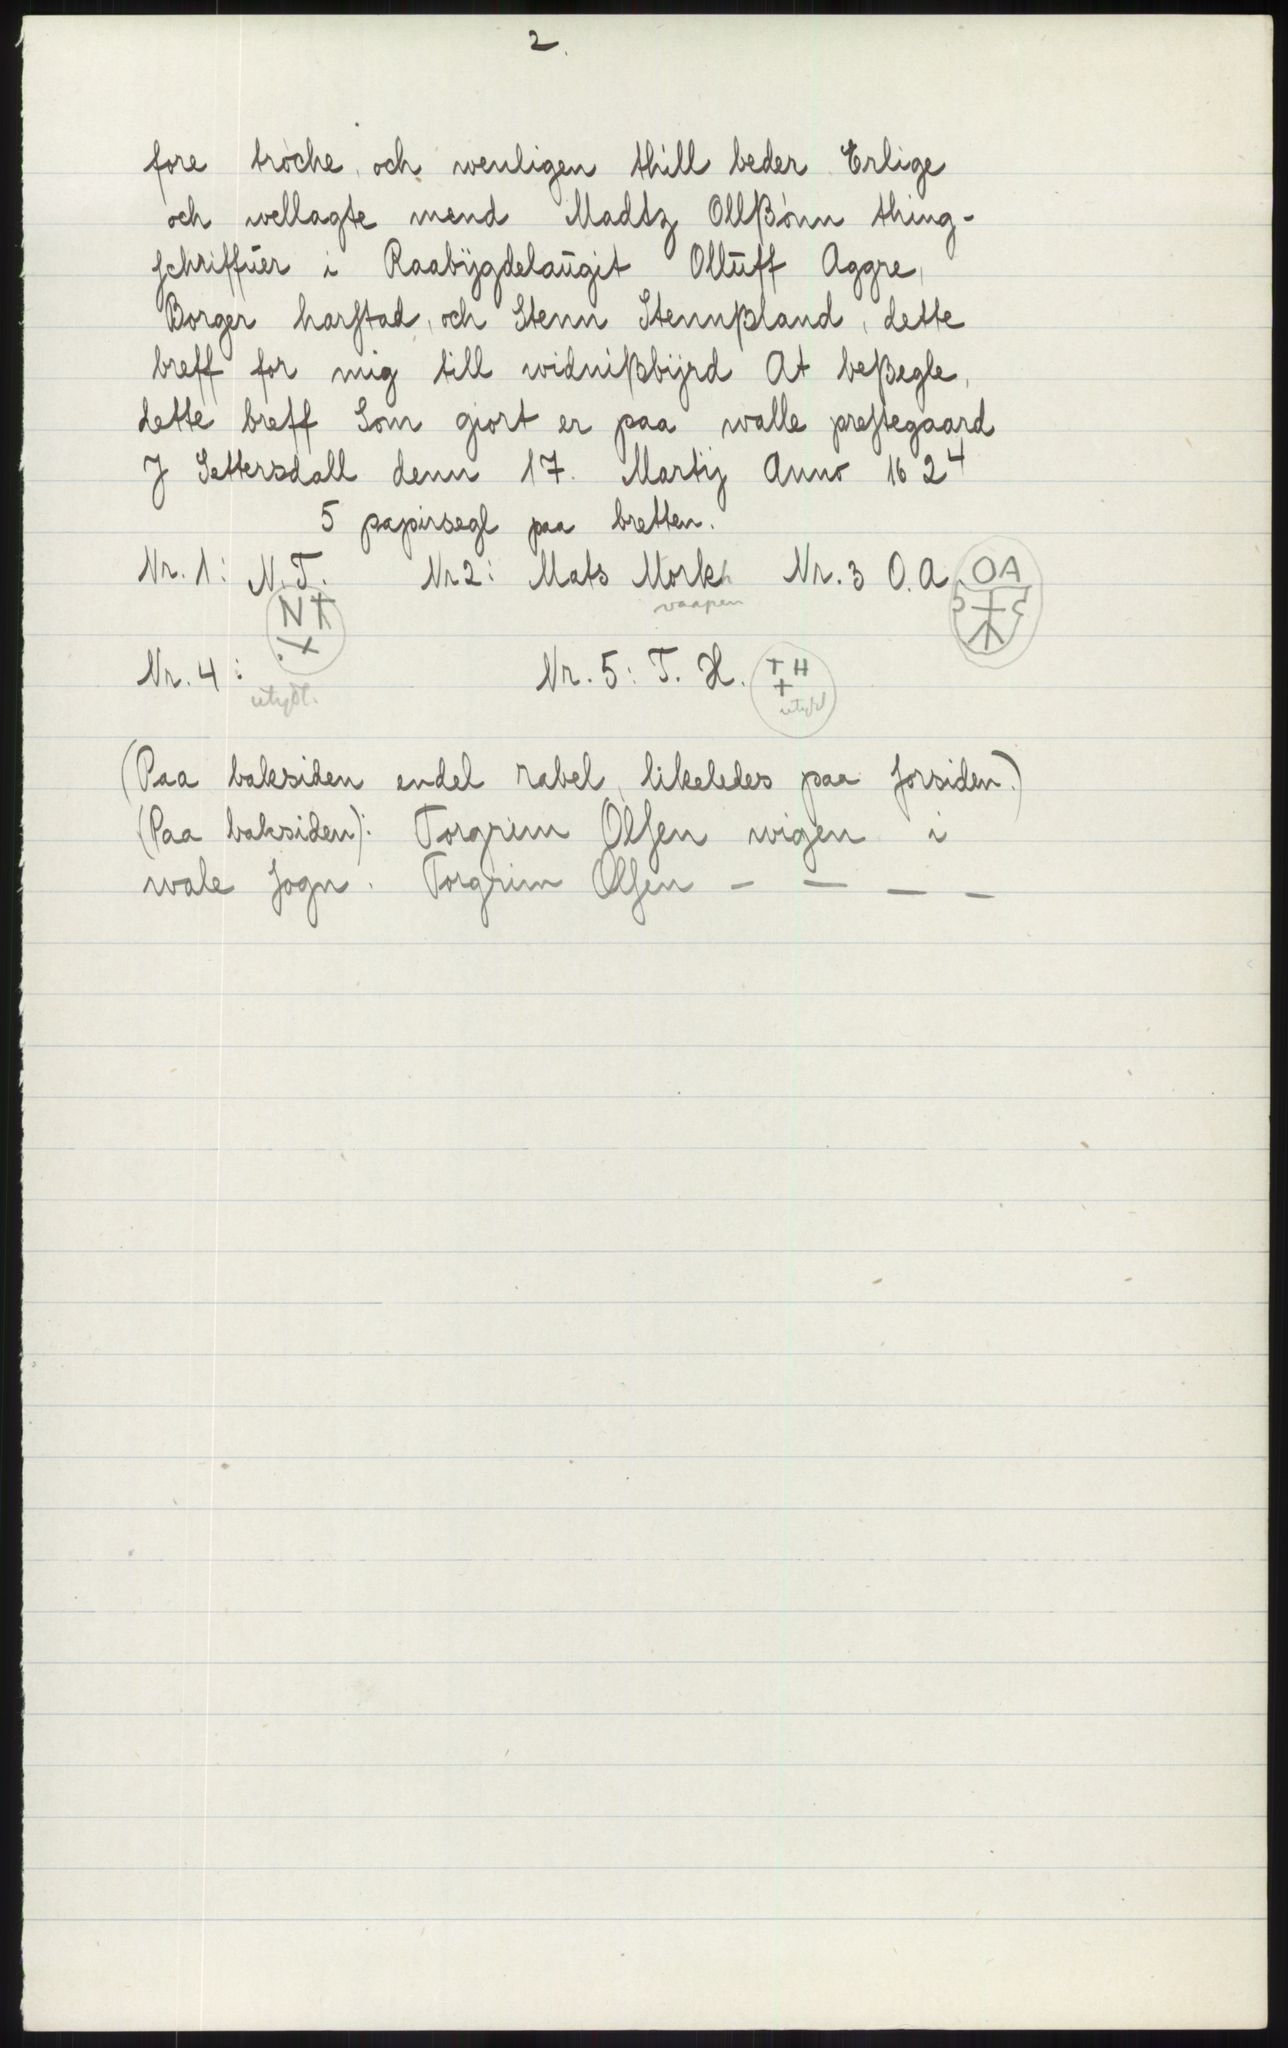 2.
fore tröche, och wenligen thill beder Erlige
och wellagte mend Madtz Ollßönn thing-
schriffūer i Raabÿgdelaūgit Ollūff Aggre,
Borger harstad, och Stenn Stennßland, dette
breff for mig till widnißbÿrd At beßegle,
dette breff Som giort er paa walle prestegaard
J Settersdall denn 17. Martij Anno 1624
5 papirsegl paa bretten.
Nr. 1: N.T. Nr 2: Mats Mork Nr. 3 O.A. OA
vaapen
NT
Nr. 4: utydl. Nr. 5: T. H. T H
utydl
(Paa baksiden endel rabel, likeledes paa forsiden.)
(Paa baksiden): Torgrim Olsen wigen i
wale sogn. Torgrim Olsen – – – –